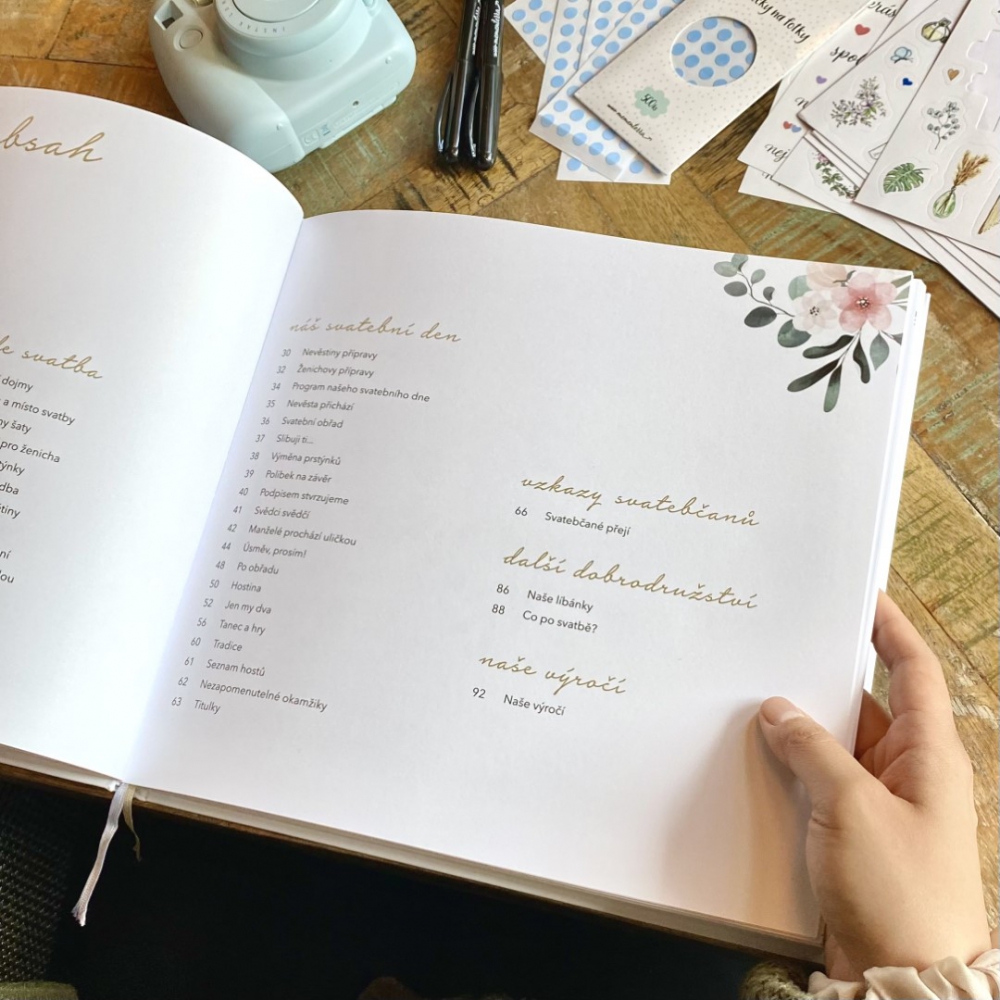 obsah
svatba
dojmy
a místo svatby
šaty
pro ženicha
náš svatební den
30 Nevěstiny přípravy
32 Ženichovy přípravy
34 Program našeho svatebního dne
35 Nevěsta přichází
36 Svatební obřad
37 Slibuji ti...
38 Výměna prstýnků
39 Polibek na závěr
40 Podpisem stvrzujeme
41 Svědci svědčí
42 Manželé prochází uličkou
44 Úsměv, prosím!
48 Po obřadu
50 Hostina
52 Jen my dva
56 Tanec a hry
60 Tradice
61 Seznam hostů
62 Nezapomenutelné okamžiky
63 Titulky
vzkazy svatebčanů
66 Svatebčané přejí
další dobrodružství
86 Naše líbánky
88 Co po svatbě?
naše výročí
92 Naše výročí
INSTAX
na fotky